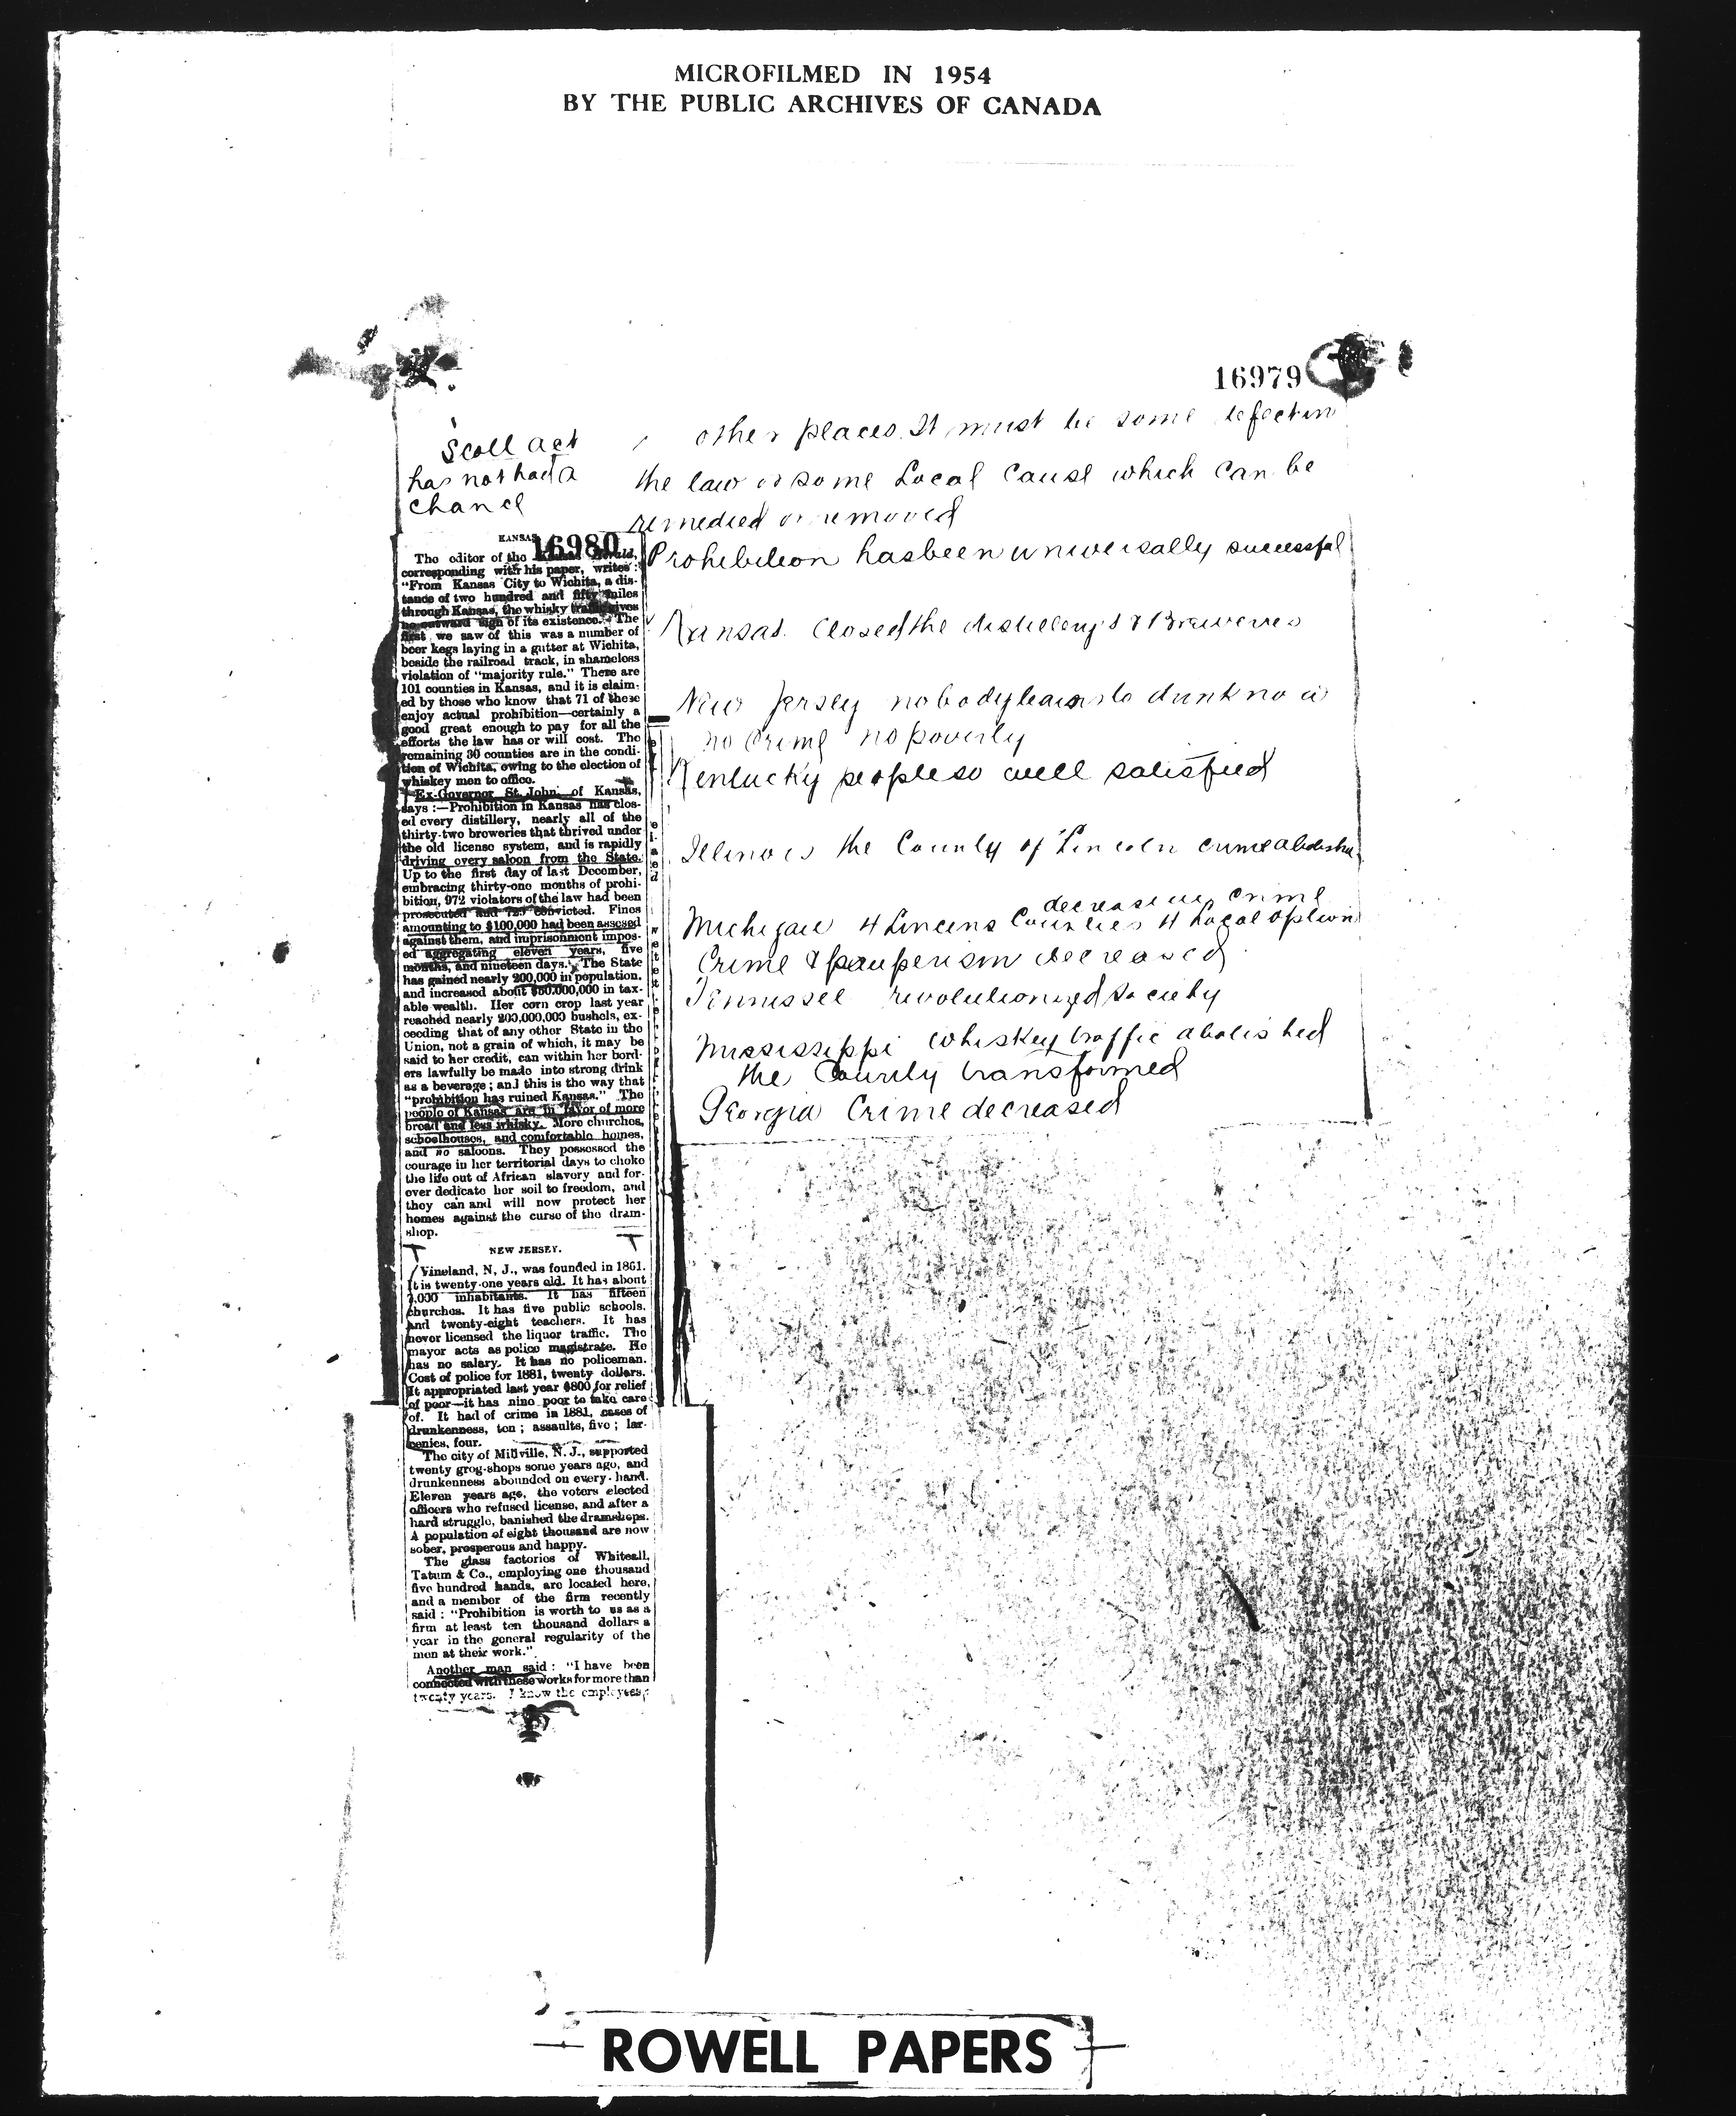 MICROFILMED IN 1954
BY THE PUBLIC ARCHIVES OF CANADA
16979
Scott act
has not had a
chance
other places. It must be some defect in
the law or some Local Cause which can be
remedied or removed
Prohibition has been universally successful
Kansas. Closed the distillery's & Breweries
New Jersey nobody learns to drink no
no crime no poverty
Kentucky people so well satisfied
Illinois the County of Lincoln crime
decrease in crime
Michigan 4 Counties 4 Local option
Crime & pauperism decreased
Tennessee revolutionized society
Mississippi whiskey traffic abolished
the County transformed
Georgia Crime decreased
KANSAS
16980
The editor of the Kansas Herald,
corresponding with his paper, writes:
"From Kansas City to Wichita, a dis-
tance of two hundred and fifty miles
through Kansas, the whisky traffic gives
no outward sign of its existence. The
first we saw of this was a number of
beer kegs laying in a gutter at Wichita,
beside the railroad track, in shameless
violation of "majority rule." There are
101 counties in Kansas, and it is claim-
ed by those who know that 71 of these
enjoy actual prohibition—certainly a
good great enough to pay for all the
efforts the law has or will cost. The
remaining 30 counties are in the condi-
tion of Wichita, owing to the election of
whiskey men to office.
Ex-Governor St. John, of Kansas,
says :—Prohibition in Kansas has clos-
ed every distillery, nearly all of the
thirty-two breweries that thrived under
the old license system, and is rapidly
driving every saloon from the State.
Up to the first day of last December,
embracing thirty-one months of prohi-
bition, 972 violators of the law had been
prosecuted and 725 convicted. Fines
amounting to $100,000 had been assessd
against them, and imprisonment impos-
ed aggregating eleven years, five
months, and nineteen days. The State
has gained nearly 200,000 in population,
and increased about $50,000,000 in tax-
able wealth. Her corn crop last year
reached nearly 200,000,000 bushels, ex-
ceeding that of any other State in the
Union, not a grain of which, it may be
said to her credit, can within her bord-
ers lawfully be made into strong drink
as a beverage ; and this is the way that
"prohibition has ruined Kansas." The
people of Kansas are in favor of more
bread and less whisky. More churches,
schoolhouses, and comfortable homes,
and no saloons. They possessed the
courage in her territorial days to choke
the life out of African slavery and for-
ever dedicate her soil to freedom, and
they can and will now protect her
homes against the curse of the dram-
shop.
NEW JERSEY.
Vineland, N. J., was founded in 1861.
It is twenty-one years old. It has about
7,000 inhabitants. It has fifteen
churches. It has five public schools,
and twenty-eight teachers. It has
never licensed the liquor traffic. The
mayor acts as police magistrate. He
has no salary. It has no policeman.
Cost of police for 1881, twenty dollars.
It appropriated last year $800 for relief
of poor—it has nine poor to take care
of. It had of crime in 1881, cases of
drunkenness, ten ; assaults, five ; lar-
cenies, four.
The city of Millville, N. J., supported
twenty grog-shops some years ago, and
drunkenness abounded on every hand.
Eleven years ago, the voters elected
officers who refused license, and after a
hard struggle, banished the dramshops.
A population of eight thousand are now
sober, prosperous and happy.
The glass factories of Whiteall,
Tatum & Co., employing one thousand
five hundred hands, are located here,
and a member of the firm recently
said : "Prohibition is worth to us as a
firm at least ten thousand dollars a
year in the general regularity of the
men at their work."
Another man said : "I have been
connected with these works for more than
twenty years. I know the employees,
ROWELL PAPERS